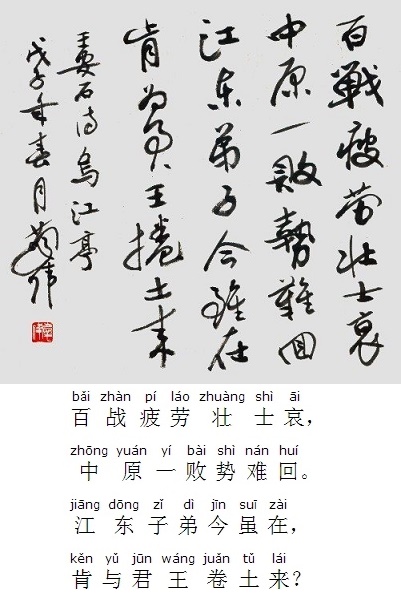 百戰疲劳壮士哀
中原一敗勢難回
江东弟子今雖在
肯为君王捲土来
王安石诗乌江亭
戊子年春月
bǎi zhàn pí láo zhuàng shì āi
百战疲劳壮士哀，
zhōng yuán yí bài shì nán huí
中原一败势难回。
jiāng dōng zǐ dì jīn suī zài
江东子弟今虽在，
kěn yǔ jūn wáng juǎn tǔ lái
肯与君王卷土来？